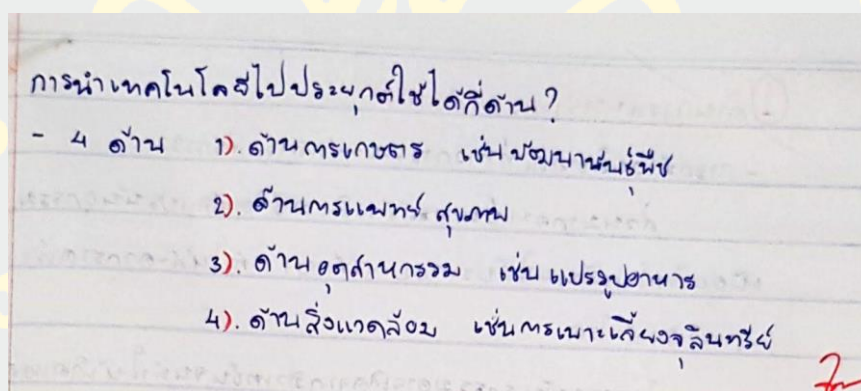 การนำเทคโนโลยีไปประยุกต์ใช้ได้กี่ด้าน?
- 4 ด้าน 1). ด้านการเกษตร เช่นพัฒนาพันธุ์พืช
2). ด้านการแพทย์ สุขภาพ
3). ด้านอุตสาหกรรม เช่นแปรรูปอาหาร
4). ด้านสิ่งแวดล้อม เช่นการเพาะเลี้ยงจุลินทรีย์